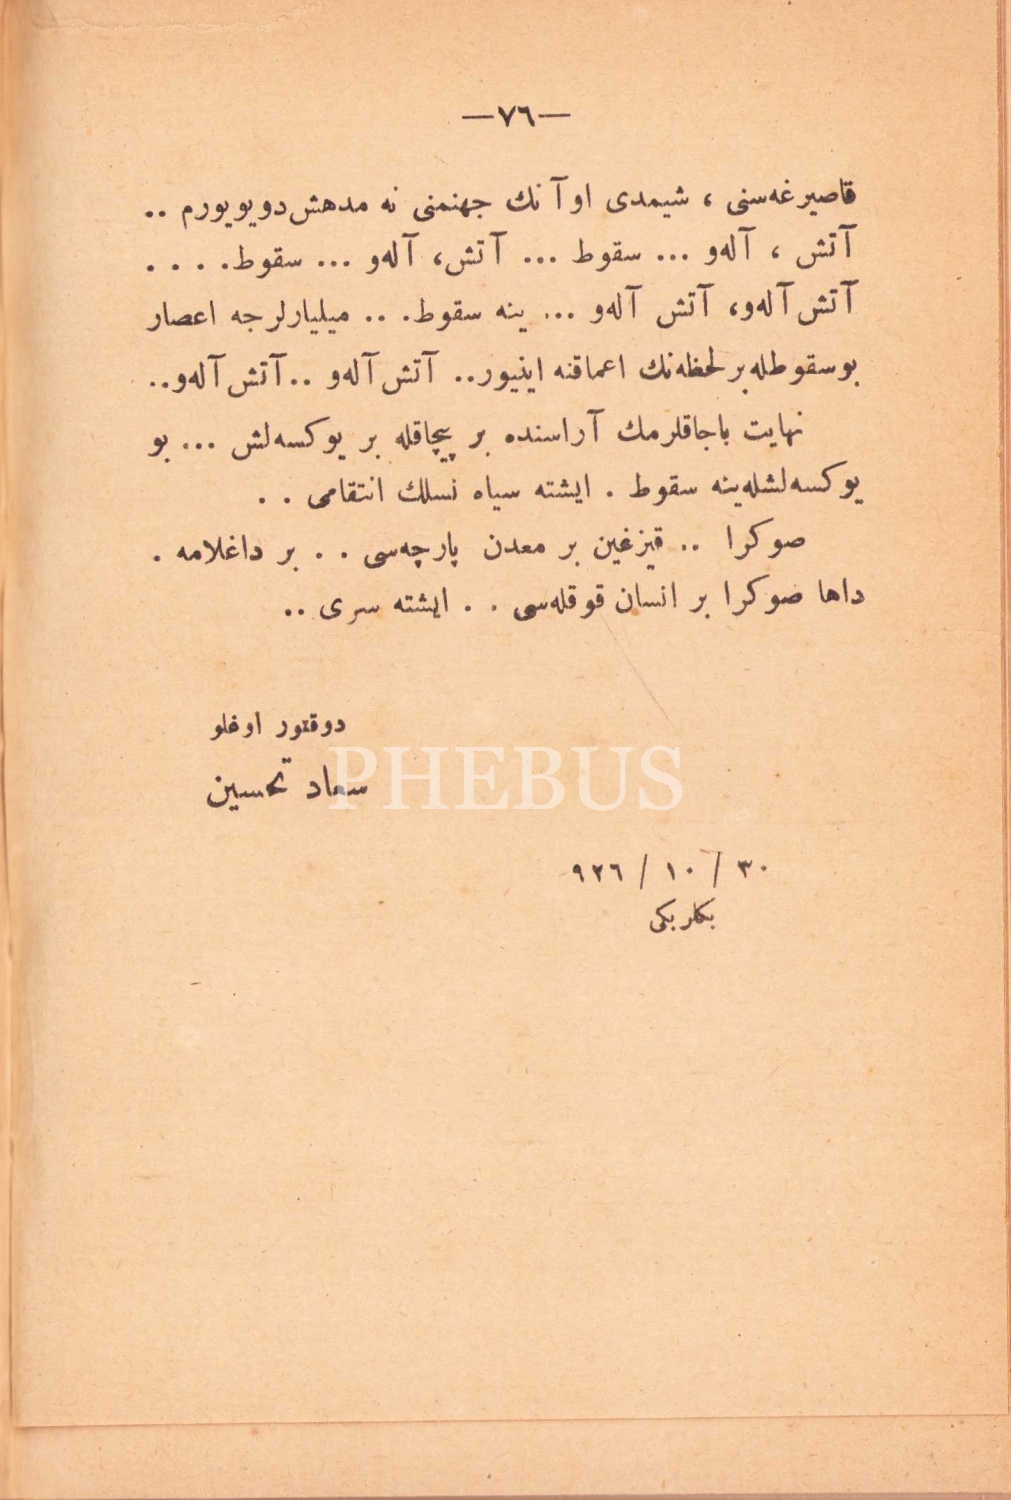 —٧٦—
قاصیرغه‌سنی ، شیمدی او آ نك جهنمنی نه مدهش دویویورم ..
آتش ، آله‌و ... سقوط ... آتش، آله‌و ... سقوط. . . .
آتش آله‌و، آتش آله‌و ... ینه سقوط. .. میلیارلرجه اعصار
بو سقوطله بر لحظه‌نك اعماقنه اینیور.. آتش آله‌و ..آتش آله‌و..
نهایت باجاقلرمك آراسنده بر پیچاقله بر یوکسه‌لش ... بو
یوکسه‌لشله ینه سقوط . ایشته سیاه نسلك انتقامی . .
صوکرا .. قیزغین بر معدن پارچه‌سی . . بر داغلامه .
داها صوکرا بر انسان قوقله‌سی . . ایشته سری ..
دوقتور اوغلو
سعاد تحسین
PHEBUS
٣٠ / ١٠ / ٩٢٦
بکلربکی